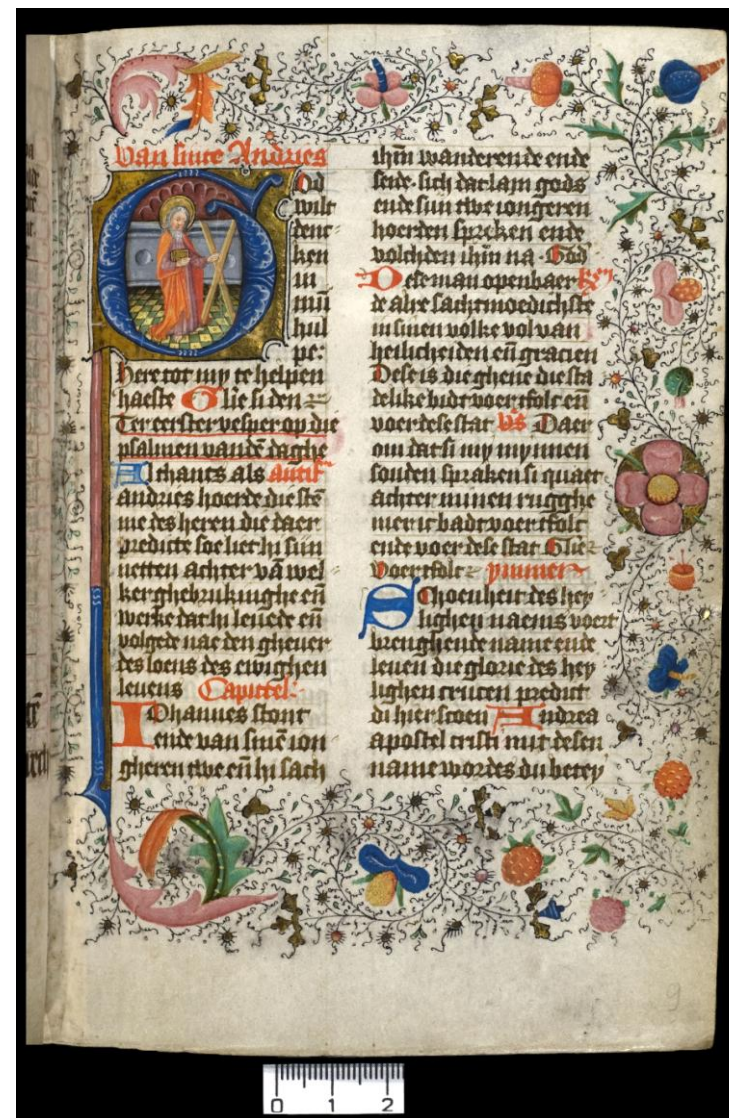 Van sinte Andries
God
wilt
denc
ken
in
mīn
hul
pe:
Here tot my te helpen
haeste Glie si den
Ter eerster vesper op die
psalmen vandē daghe
Al thants als antif
andries hoerde die stē
me des heren die daer
predicte soe liet hi sijn
netten achter vā wel
ker ghebrukinghe eñ
werke dat hi leuede eñ
volgede nae den gheuer
des loens des ewighen
leuens Capittel:
Iohannes stont
ende van sinē ion
gheren twe eñ hi sach
ihm̄ wanderende ende
seide sich dat lam gods
ende sijn twe iongeren
hoerden spreken ende
volchden ihm̄ na God
Dese man openbaer
de alre sachtmoedichste
in sinen volke vol van
heilicheiden eñ gracien
Dese is die ghene die sta
delike bidt voer tfolc eñ
voer dese stat vs Daer
om dat si my mynnen
souden spraken si quaet
achter minen rugghe
mer ic badt voer tfolc
ende voer dese stat Glie
voer tfolc ymmer
Schoenheit des hey
lighen naems voert
brenghende name ende
leuen die glorie des hey
lighen crucen predict
di hier scoen Andrea
apostel cristi mit desen
name wordes du betey
9
0 1 2